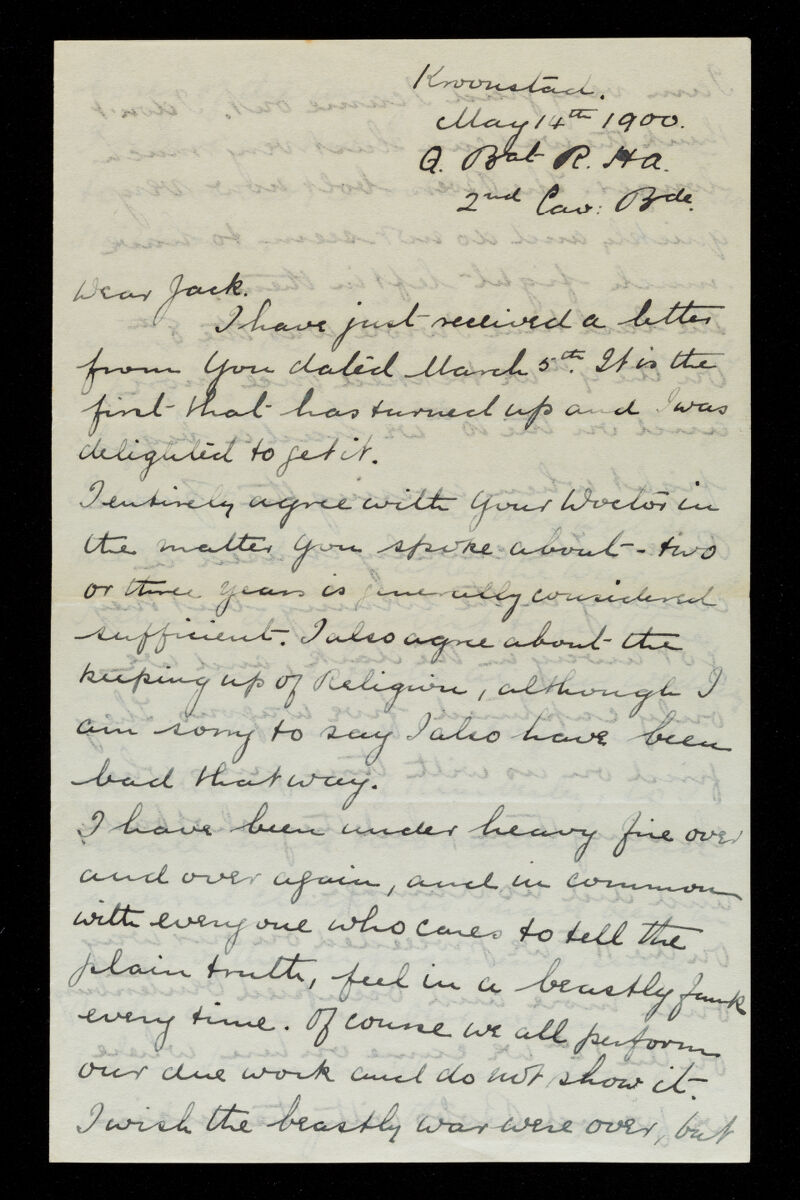 Kroonstad.
May 14th 1900.
Q. Bat R. H A.
2nd Cav: Bde.
Dear Jack.
I have just received a letter
from you dated March 5th. It is the
first that has turned up and I was
delighted to get it.
I entirely agree with your Doctor in
the matter you spoke about - two
or three years is generally considered
sufficient. I also agree about the
keeping up of Religion, although I
am sorry to say I also have been
bad that way.
I have been under heavy fire over
and over again, and in common
with everyone who cares to tell the
plain truth, feel in a beastly funk
every time. Of course we all perform
our due work and do not show it.
I wish the beastly war were over, but